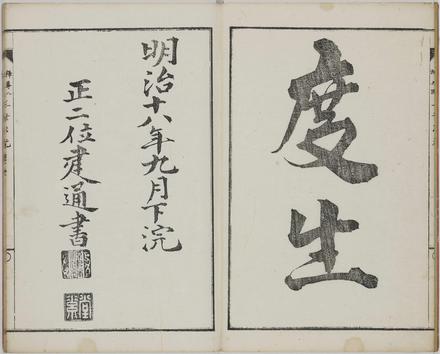 度生
明治十八年九月下浣
正二位建通書